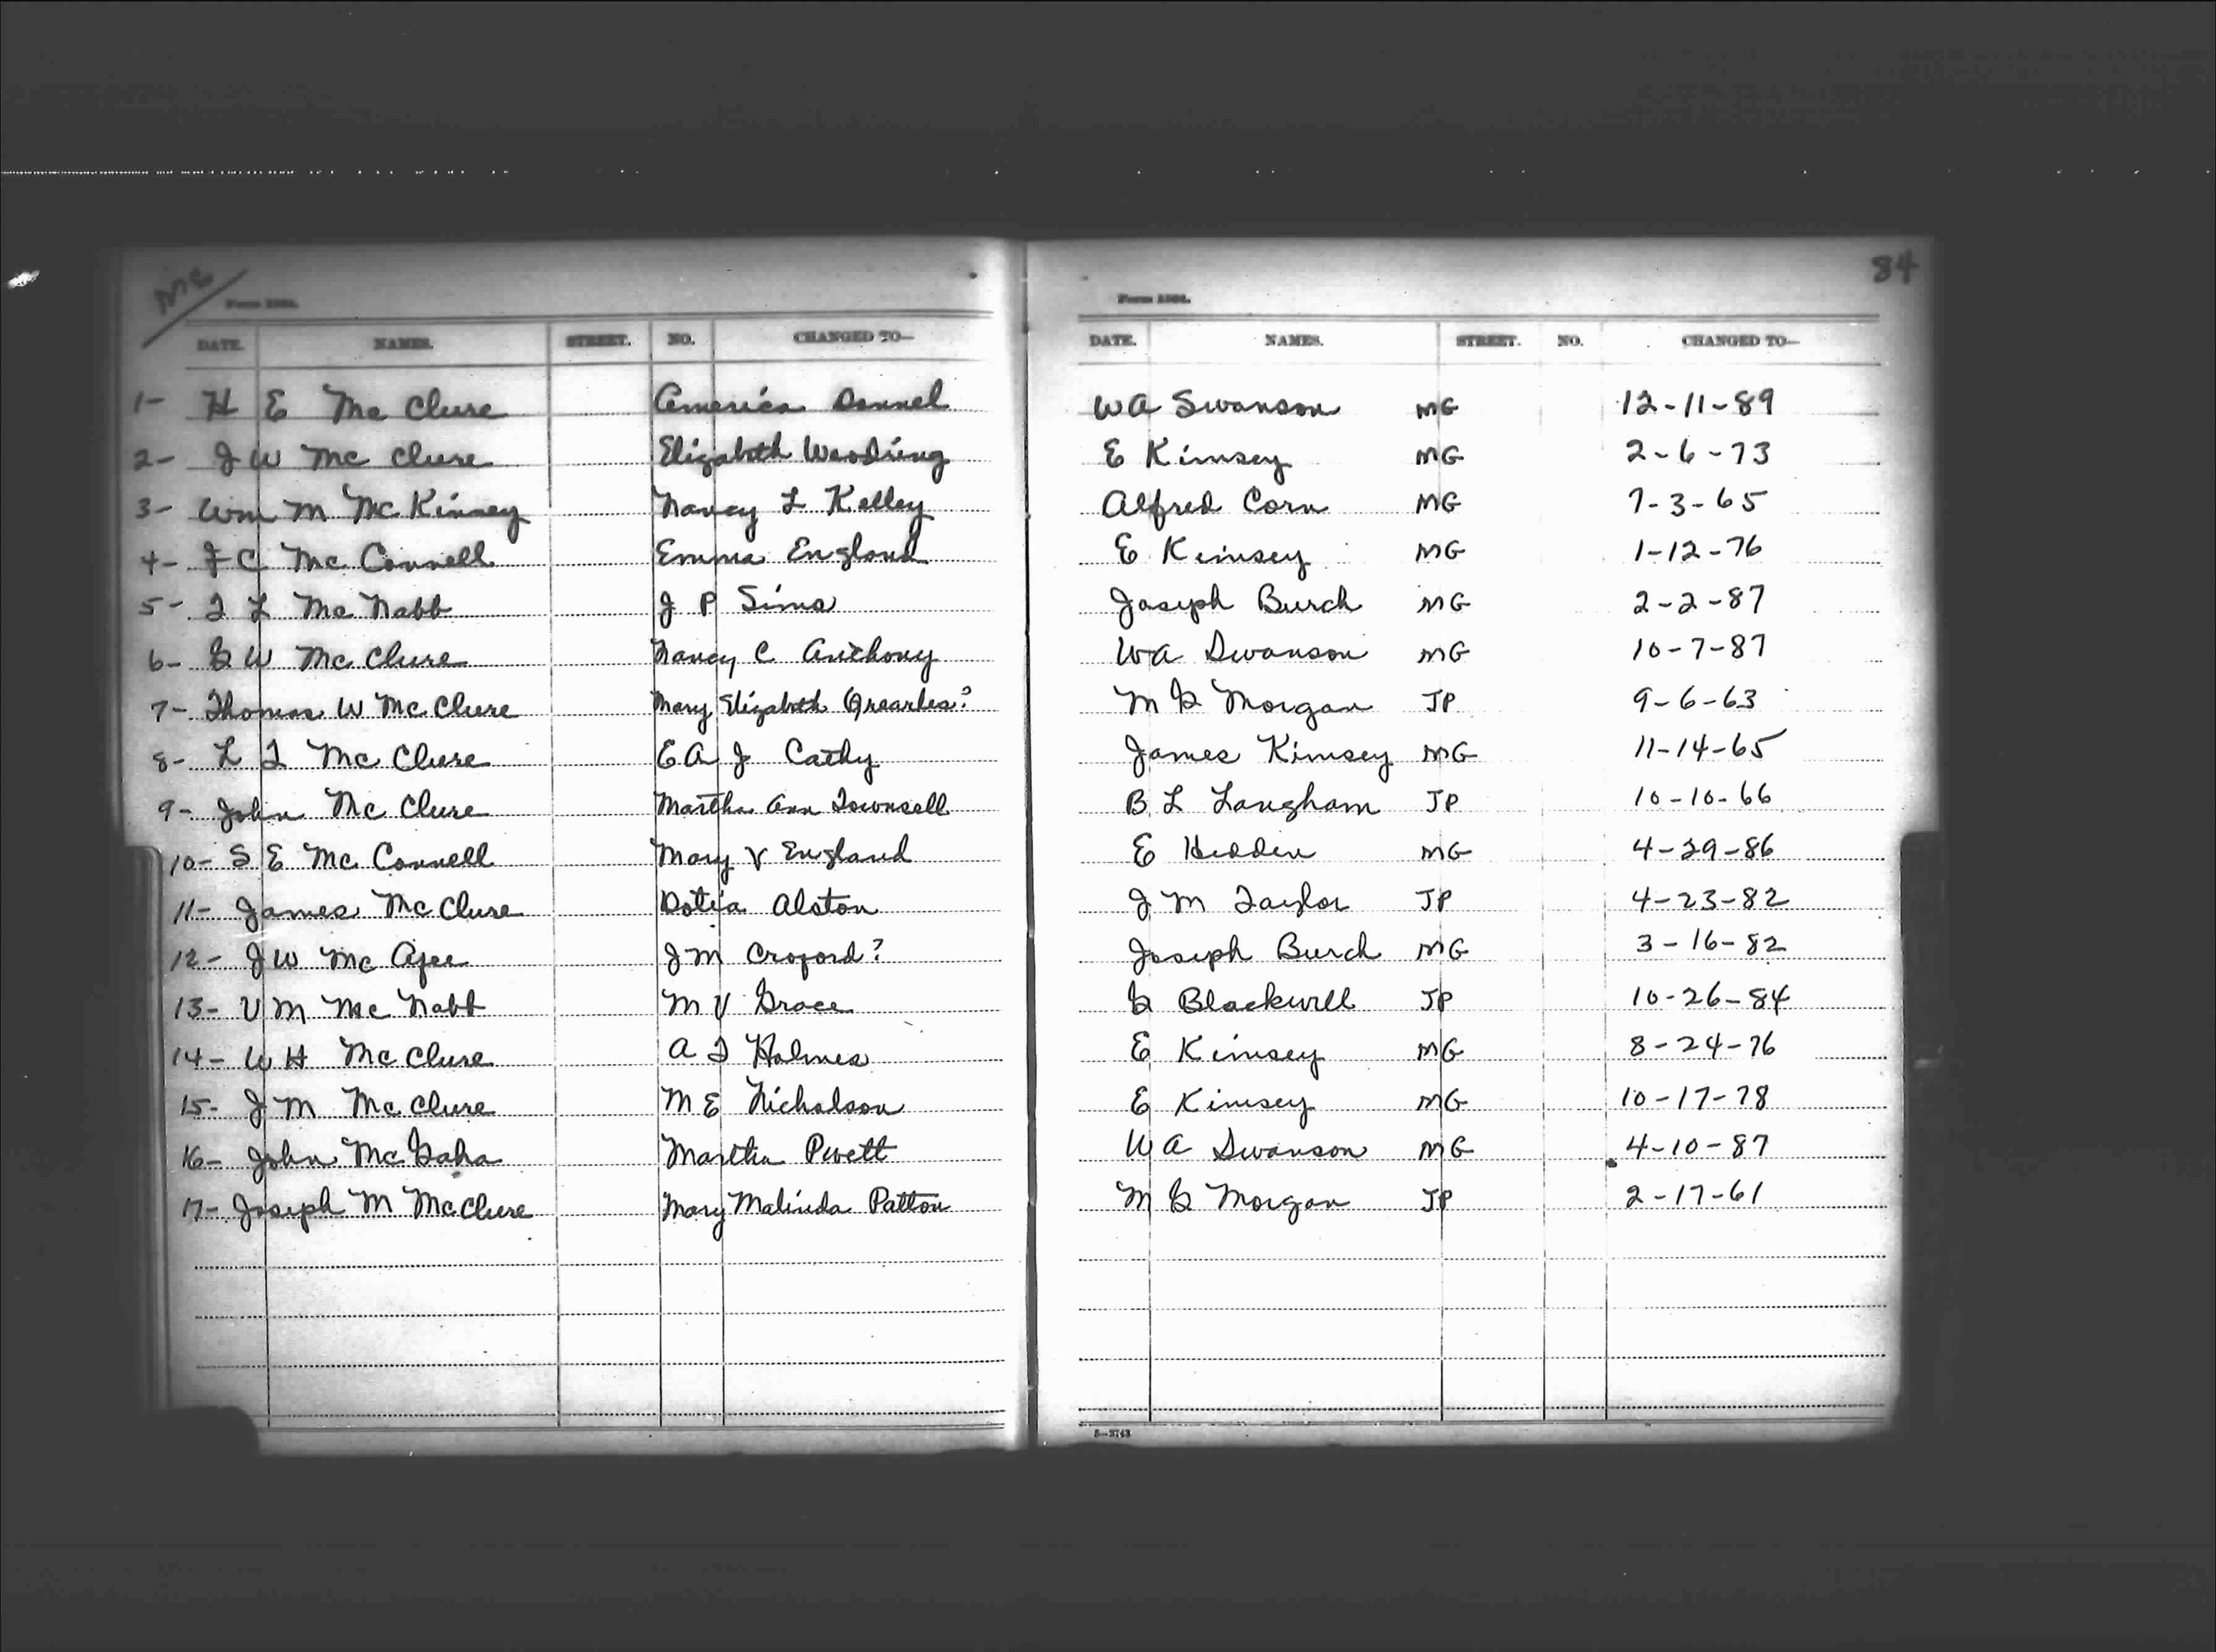 Mc
84
Form 1564.
Form 1564.
DATE. NAMES. STREET. NO. CHANGED TO— DATE. NAMES. STREET. NO. CHANGED TO—
1- H E Mc Clure America Donnel WA Swanson MG 12-11-89
2- J W Mc Clure Elizabeth Woodring E Kimsey MG 2-6-73
3- Wm M McKinney Nancy L Kelley Alfred Corn MG 7-3-65
4- F C Mc Connell Emma England E Kimsey MG 1-12-76
5- T L Mc Nabb J P Sims Joseph Burch MG 2-2-87
6- G W Mc Clure Nancy C Anthony WA Swanson MG 10-7-87
7- Thomas W McClure Mary Elizabeth ? M G Morgan JP 9-6-63
8- L T Mc Clure E A J Cathy James Kimsey MG 11-14-65
9- John Mc Clure Martha Ann Townsell B L Langham JP 10-10-66
10- S E Mc Connell Mary V England E Hedden MG 4-29-86
11- James McClure Dotia Alston J M Taylor JP 4-23-82
12- J W Mc Afee J M Croford? Joseph Burch MG 3-16-82
13- V M Mc Nabb M V Grace G Blackwell JP 10-26-84
14- W H McClure A T Holmes E Kimsey MG 8-24-76
15- J M McClure M E Nicholson E Kimsey MG 10-17-78
16- John McGaha Martha Pruett W A Swanson MG 4-10-87
17- Joseph M McClure Mary Malinda Patton M G Morgan JP 2-17-61
5—3743